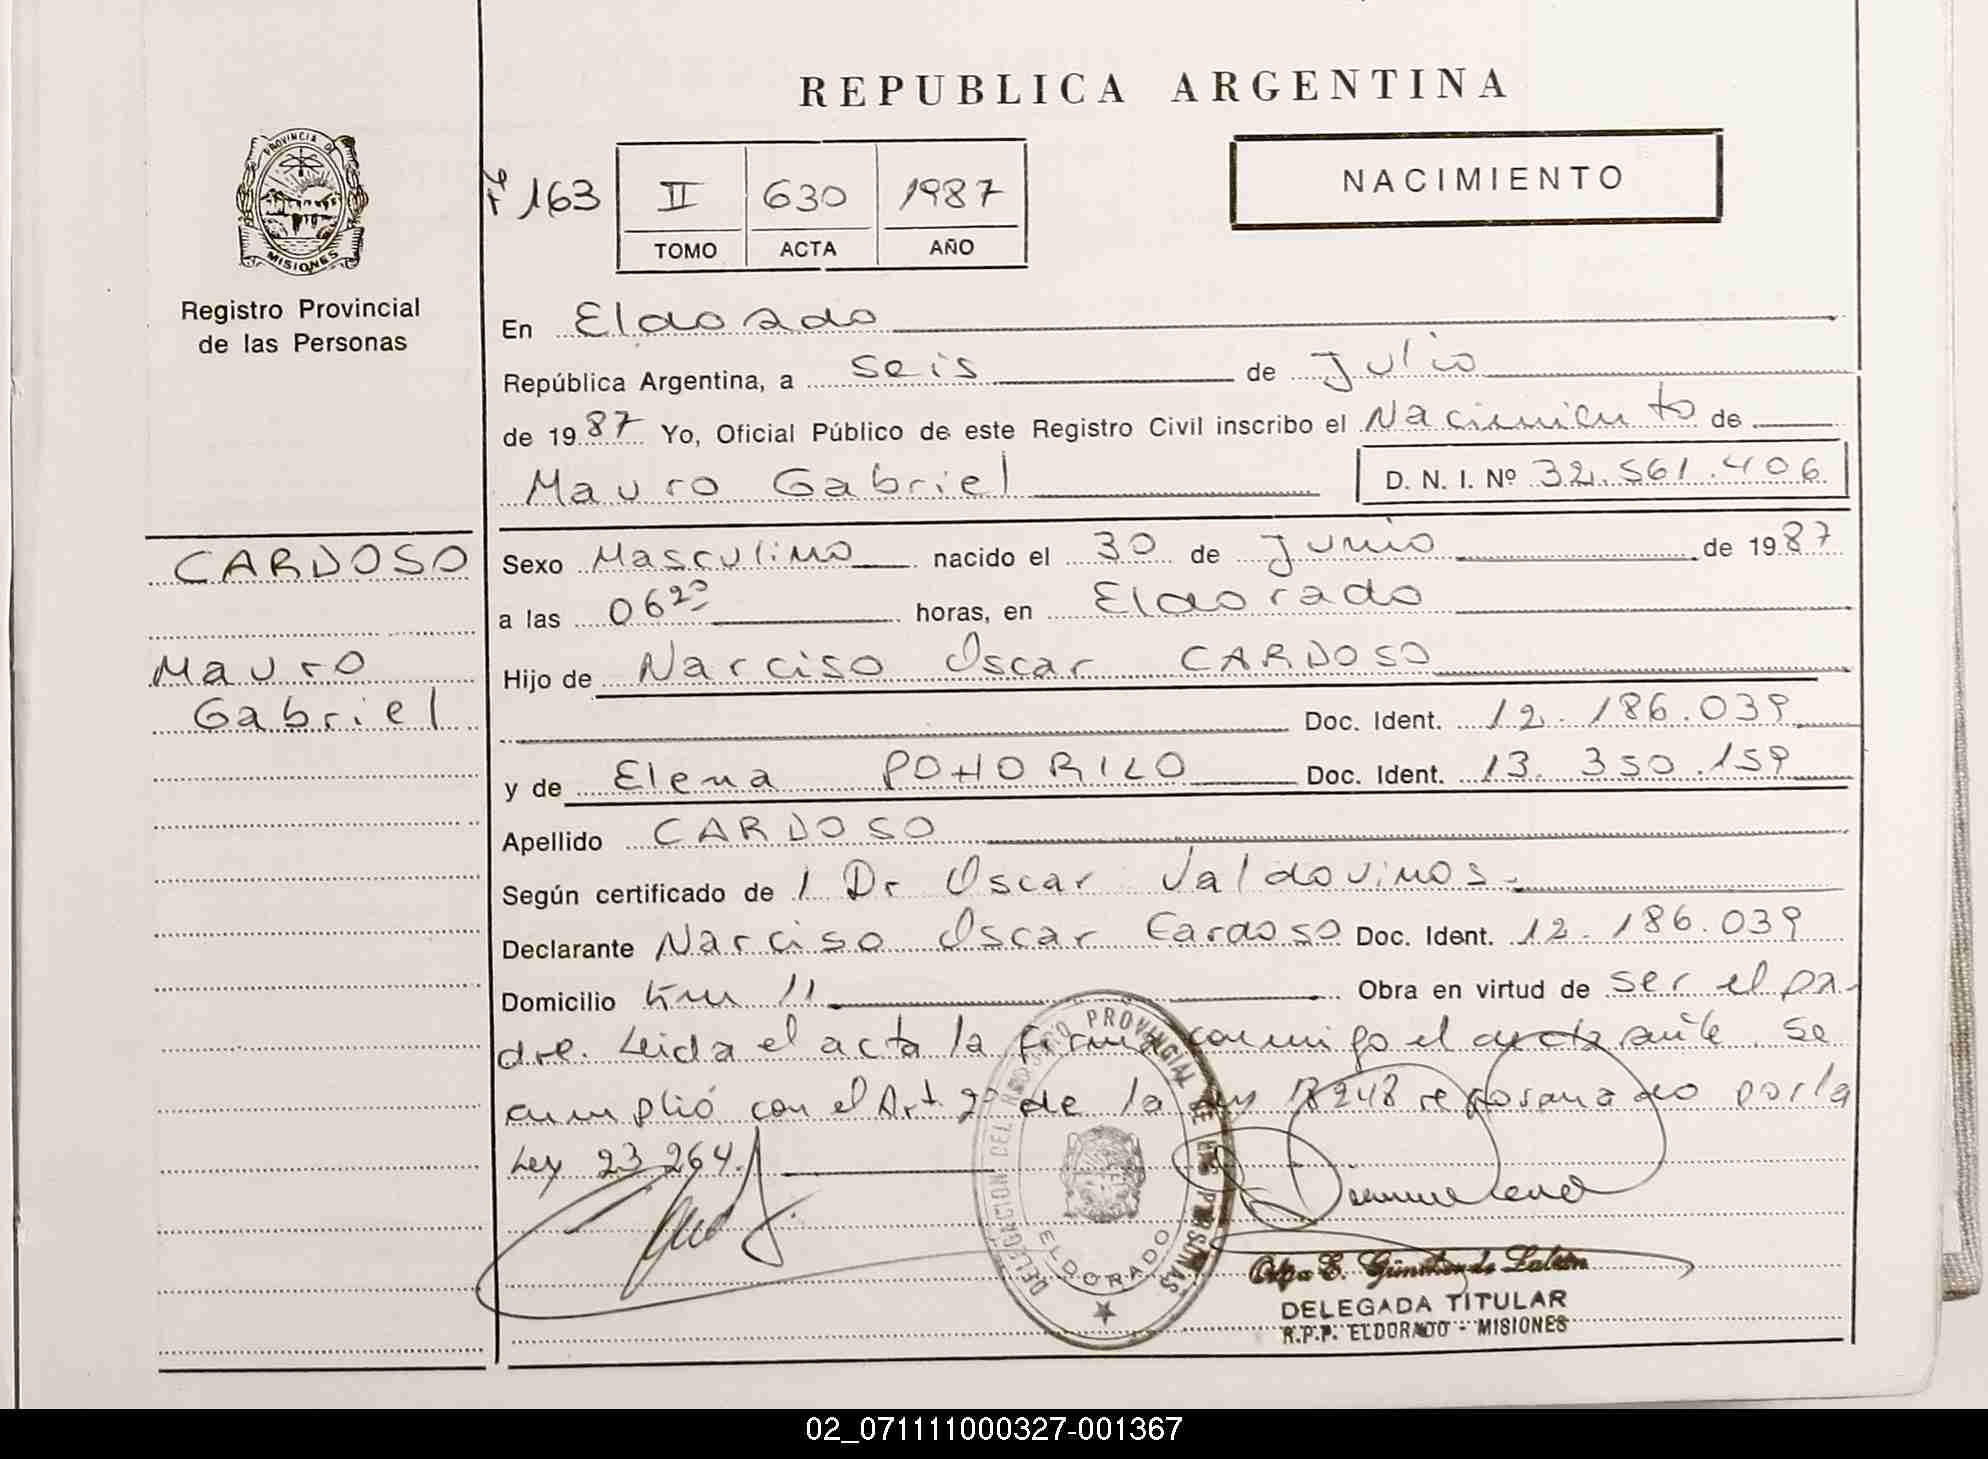 REPUBLICA ARGENTINA
PROVINCIA DE
MISIONES
Registro Provincial
de las Personas
Fº 163
II 630 1987
TOMO ACTA AÑO
NACIMIENTO
En Eldorado
República Argentina, a seis de Julio
de 1987 Yo, Oficial Público de este Registro Civil inscribo el Nacimiento de
Mauro Gabriel D. N. I. Nº 32.561.406
CARDOSO
Mauro
Gabriel
Sexo Masculino nacido el 30 de Junio de 1987
a las 06 horas, en Eldorado
Hijo de Narciso Oscar CARDOSO
Doc. Ident. 12.186.039
y de Elena POHORILO Doc. Ident. 13.350.159
Apellido CARDOSO
Según certificado de l Dr Oscar Valdovinos.
Declarante Narciso Oscar Cardoso Doc. Ident. 12.186.039
Domicilio Km 11 Obra en virtud de ser el pa-
dre. Leida el acta la firma conmigo el Se
cumplió con el Art. 2º de la Ley 18248 reformado por la
Ley 23.264.
DELEGACION DEL REGISTRO PROVINCIAL DE LAS PERSONAS
ELDORADO
DELEGADA TITULAR
R.P.P. ELDORADO - MISIONES
02_071111000327-001367